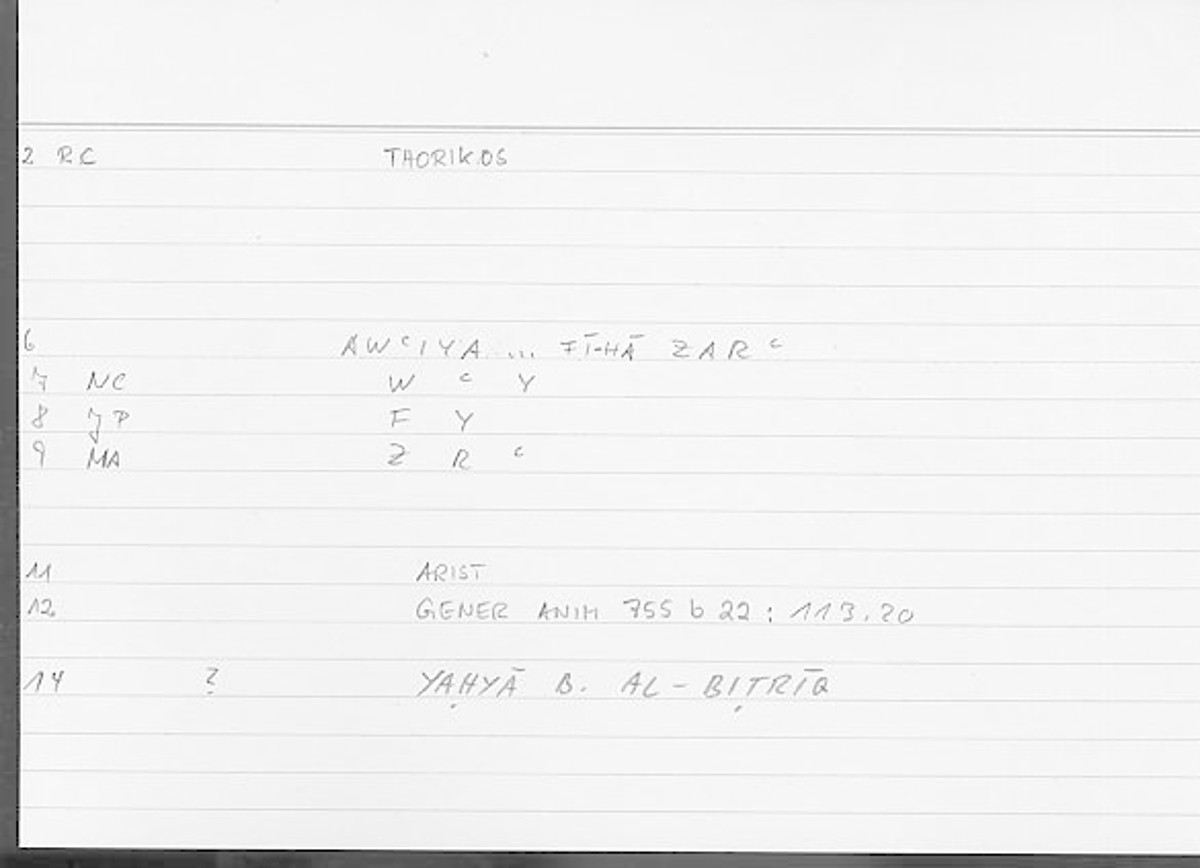 2 RC THORIKOS
6 AWᶜIYA ... FĪ-HĀ ZARᶜ
7 NC W ᶜ Y
8 JP F Y
9 MA Z R ᶜ
11 ARIST
12 GENER ANIM 755 b 22 : 113.20
14 ? YAḤYĀ B. AL-BIṬRĪQ